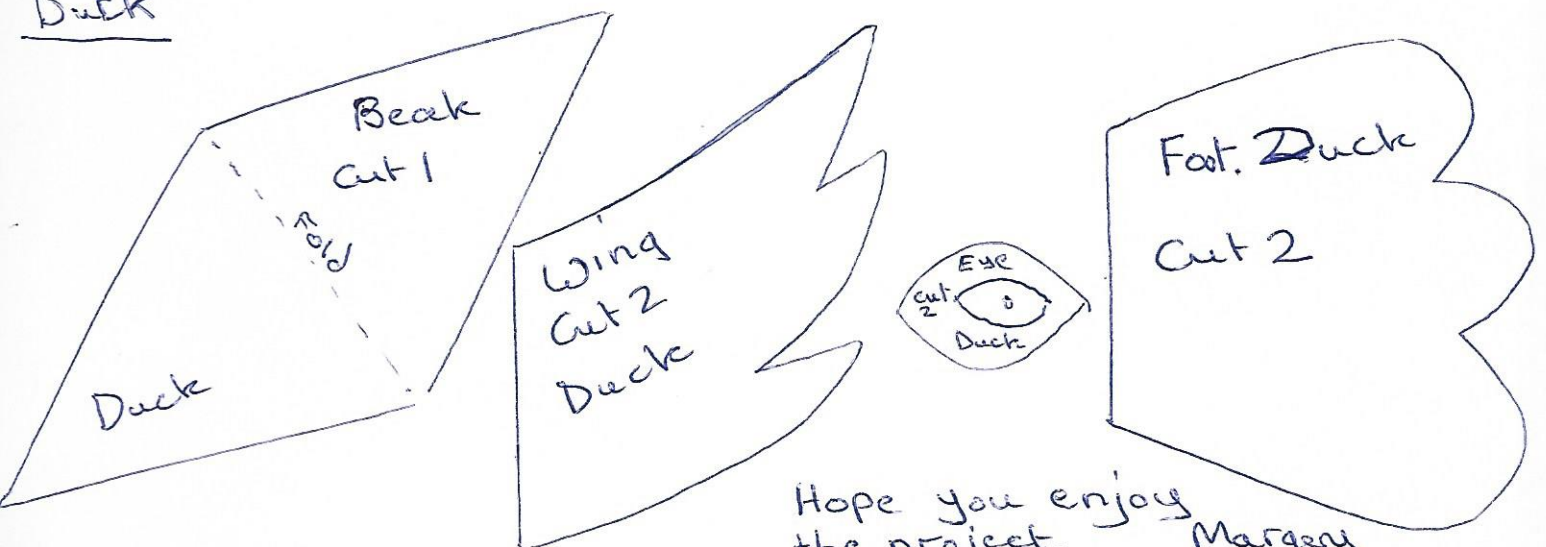 Duck
Beak
Cut 1
fold
Duck
Wing
Cut 2
Duck
Eye
cut
2
Duck
Foot. Duck
Cut 2
Hope you enjoy
the project Margery